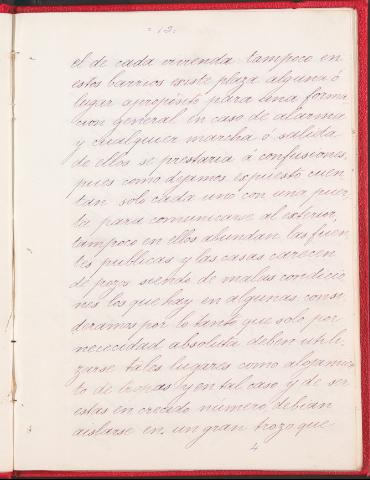 - 13 -
el de cada vivienda: tampoco en
estos barrios existe plaza alguna ó
lugar apropósito para una forma
cion general en caso de alarma
y cualquier marcha ó salida
de ellos se prestaria á confusiones,
pues como dejamos expuesto cuen
tan solo cada uno con una puer
ta para comunicarse al exterior,
tampoco en ellos abundan las fuen
tes publicas y las casas carecen
de pozos siendo de malas condicio
nes los que hay en algunas consi
deramos por lo tanto que solo por
necesidad absoluta deben utili
zarse tales lugares como alojamien
to de tropas y en tal caso y de ser
estas en crecido número, debian
aislarse en un gran trozo que
4